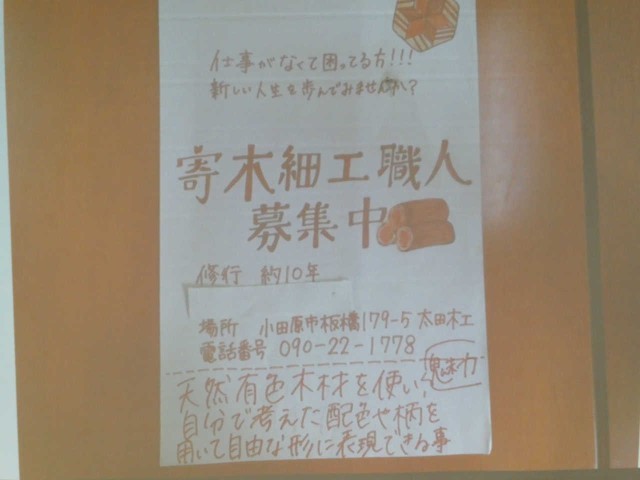 仕事がなくて困ってる方!!!
新しい人生を歩んでみませんか?
寄木細工職人
募集中
修行 約10年
場所 小田原市板橋179-5 太田木工
電話番号 090-22-1778
魅力
天然有色木材を使い、
自分で考えた配色や柄を
用いて自由な形に表現できる事